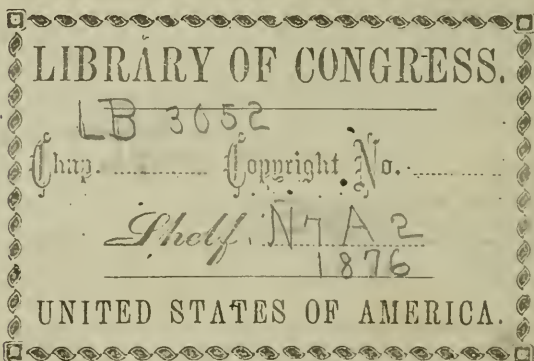 LIBRARY OF CONGRESS.
LB 3052
Chap. .............. Copyright No. .............
Shelf. N7 A2
1876
UNITED STATES OF AMERICA.